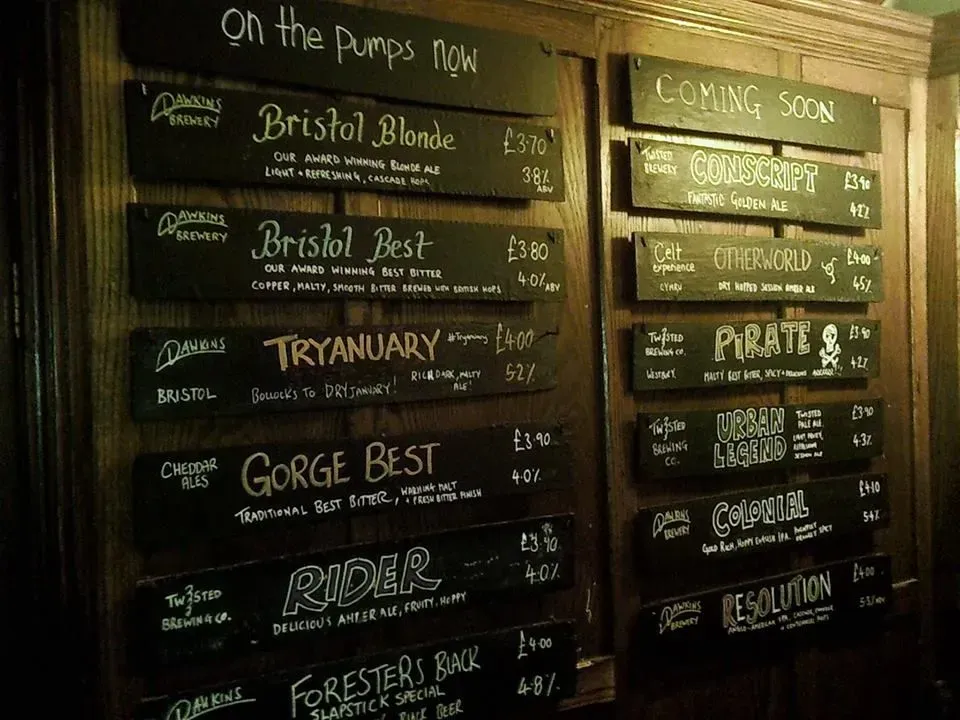 on the pumps now
DAWKINS
BREWERY
Bristol Blonde
£3·70
OUR AWARD WINNING BLONDE ALE
LIGHT + REFRESHING, CASCADE HOPS
3·8%
ABV
DAWKINS
BREWERY
Bristol Best
£3·80
OUR AWARD WINNING BEST BITTER
COPPER, MALTY, SMOOTH BITTER BREWED WITH BRITISH HOPS
4·0% ABV
DAWKINS
BRISTOL
TRYANUARY
#Tryanuary
£4·00
BOLLOCKS TO DRY JANUARY!
RICH, DARK, MALTY
ALE!
5·2%
CHEDDAR
ALES
GORGE BEST
£3·90
TRADITIONAL BEST BITTER, WARMING MALT
+ FRESH BITTER FINISH
4·0%
TW3STED
BREWING CO.
RIDER
£3·90
DELICIOUS AMBER ALE, FRUITY, HOPPY
4·0%
DAWKINS
FORESTERS BLACK
£4·00
SLAPSTICK SPECIAL
BLACK BEER
4·8%
COMING SOON
TWISTED
BREWERY
CONSCRIPT
£3·90
FANTASTIC GOLDEN ALE
4·2%
Celt
experience
CYMRU
OTHERWORLD
£4·00
DRY HOPPED SESSION AMBER ALE
4·5%
TW3STED
BREWING CO.
WESTBURY.
PIRATE
£3·90
MALTY BEST BITTER, SPICY + DELICIOUS
4·2%
TW3STED
BREWING
CO.
URBAN
LEGEND
TWISTED
PALE ALE.
LIGHT, HOPPY,
REFRESHING
SESSION ALE
£3·90
4·3%
DAWKINS
BREWERY
COLONIAL
£4·10
GOLD RICH, HOPPY ENGLISH IPA.
5·4%
DAWKINS
BREWERY
RESOLUTION
£4·00
ANGLO-AMERICAN IPA, CASCADE,
+ CENTENNIAL HOPS
5·3% ABV